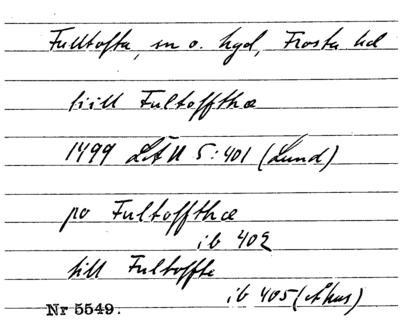 Fulltofta, sn o. hgd, Frosta hd
tiill Fultoffthæ
1499 LÄU 5:401 (Lund)
po Fultoffthæ
ib 402
till Fultoffte
ib 405 (Åhus)
Nr 5549.